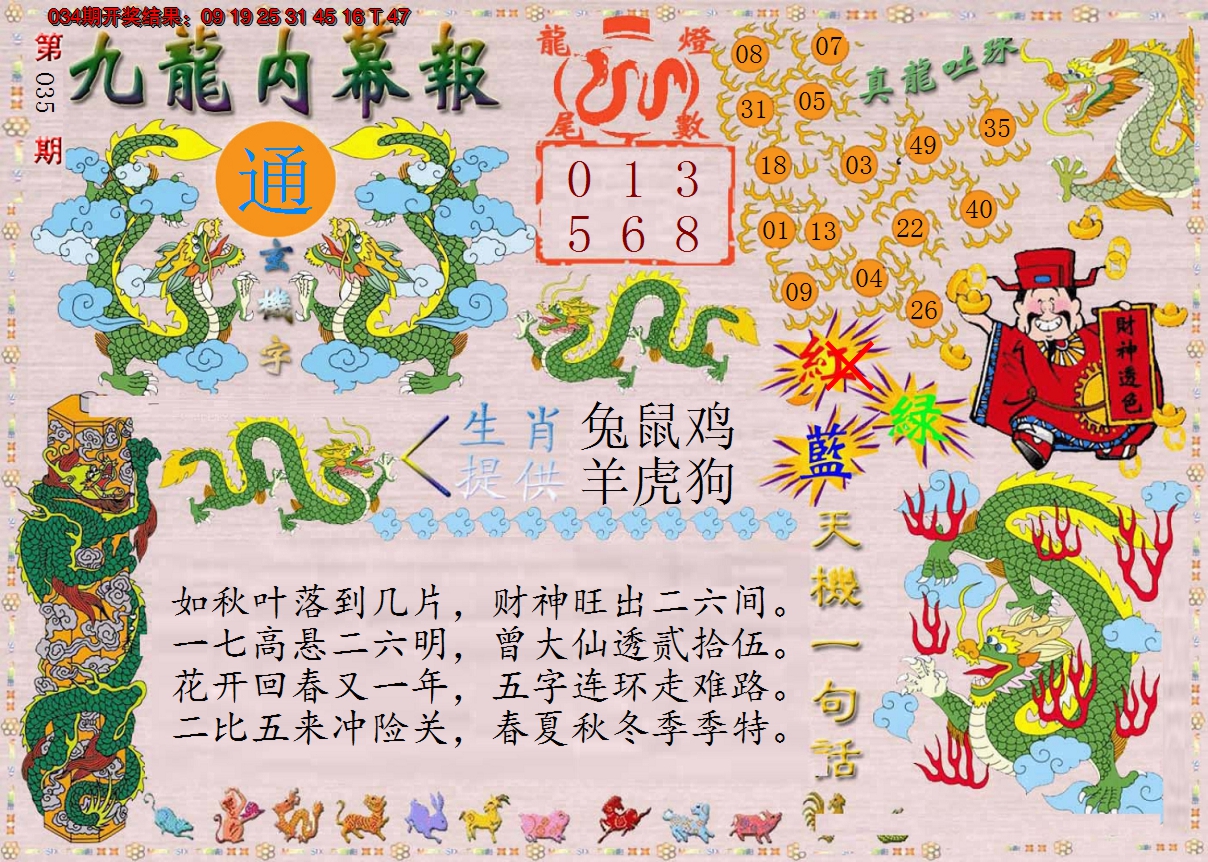 034期开奖结果：09 19 25 31 45 16 T 47
第035期
九龍内幕報
通
玄機字
龍燈
尾數
0 1 3
5 6 8
真龍吐珠
08 07
31 05
18 03 49 35
01 13 22 40
09 04 26
紅
綠
藍
財神透色
生肖 兔鼠鸡
提供 羊虎狗
天機一句话
如秋叶落到几片，财神旺出二六间。
一七高悬二六明，曾大仙透贰拾伍。
花开回春又一年，五字连环走难路。
二比五来冲险关，春夏秋冬季季特。